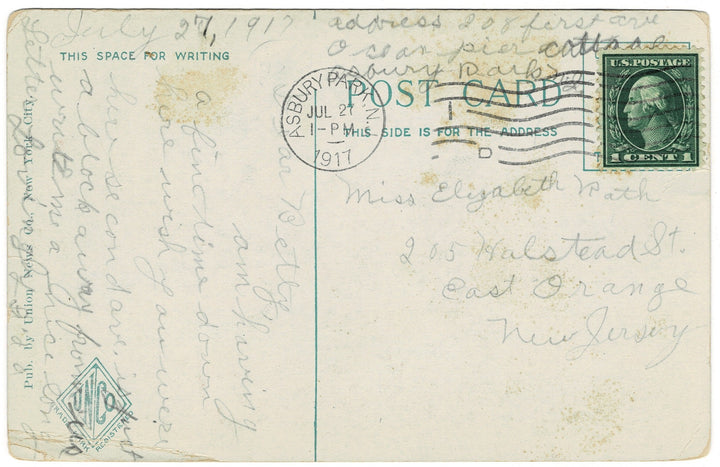 July 27, 1917
address 208 first ave
Ocean pier cottage
asbury Park
THIS SPACE FOR WRITING
POST CARD
THIS SIDE IS FOR THE ADDRESS
ASBURY PARK, N.
JUL 27
1-PM
1917
U.S. POSTAGE
1 CENT 1
Dear Betty
am having
a fine time down
here wish you were
here second ave. is just
a block away from
write me a nice long
letter
Miss Elizabeth Path
205 Halstead St.
East Orange
New Jersey
Pub. by Union News Co., New York City.
UNCO
TRADE MARK
REGISTERED